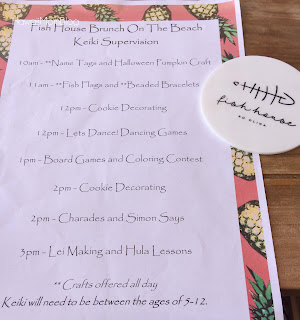 Fish House Brunch On The Beach
Keiki Supervision
10am - **Name Tags and Halloween Pumpkin Craft
11am - **Fish Flags and **Beaded Bracelets
12pm - Cookie Decorating
12pm - Lets Dance! Dancing Games
1pm - Board Games and Coloring Contest
2pm - Cookie Decorating
2pm - Charades and Simon Says
3pm - Lei Making and Hula Lessons
** Crafts offered all day
Keiki will need to be between the ages of 5-12.
fish house